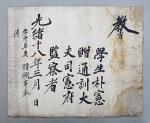 敎旨
學生朴憲
贈通訓大
夫司憲府
監察者
光緒十八年三月 日